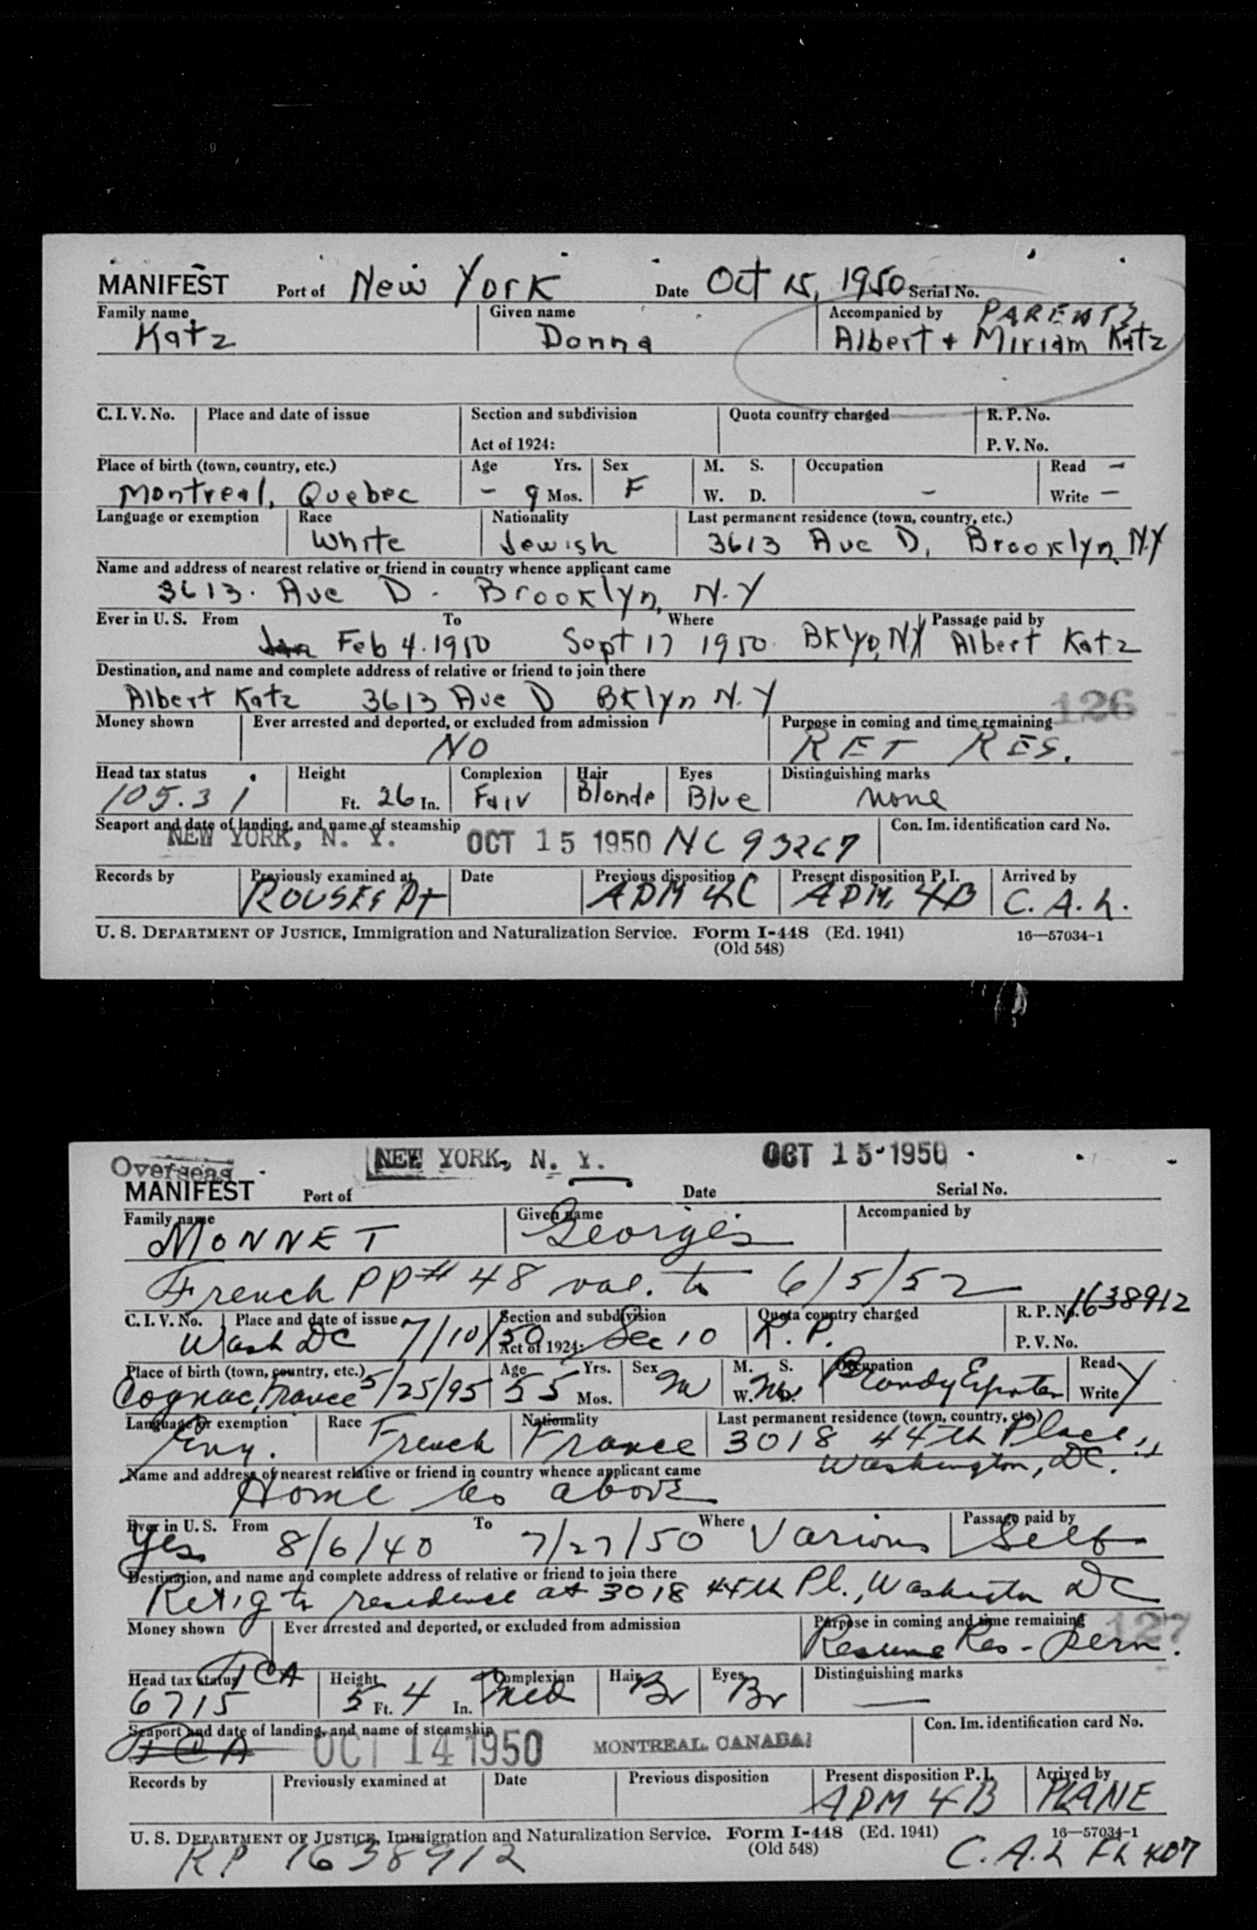 MANIFEST Port of New York Date Oct 15, 1950 Serial No.
Family name Given name Accompanied by PARENTS
Katz Donna Albert + Miriam Katz
C. I. V. No. Place and date of issue Section and subdivision Quota country charged R. P. No.
Act of 1924: P. V. No.
Place of birth (town, country, etc.) Age Yrs. Sex M. S. Occupation Read –
Montreal, Quebec – 9 Mos. F W. D. – Write –
Language or exemption Race Nationality Last permanent residence (town, country, etc.)
White Jewish 3613 Ave D, Brooklyn NY
Name and address of nearest relative or friend in country whence applicant came
3613. Ave D. Brooklyn, N.Y
Ever in U. S. From To Where Passage paid by
Feb 4. 1950 Sept 17 1950. Bklyn, NY Albert Katz
Destination, and name and complete address of relative or friend to join there
Albert Katz 3613 Ave D Bklyn N.Y
126
Money shown Ever arrested and deported, or excluded from admission Purpose in coming and time remaining
NO RET RES.
Head tax status Height Complexion Hair Eyes Distinguishing marks
105.31 Ft. 26 In. Fair Blonde Blue none
Seaport and date of landing, and name of steamship Con. Im. identification card No.
NEW YORK, N. Y. OCT 15 1950 NC 93267
Records by Previously examined at Date Previous disposition Present disposition P. I. Arrived by
ROUSES Pt ADM 4C ADM. 4B C. A. L.
U. S. DEPARTMENT OF JUSTICE, Immigration and Naturalization Service. Form I-448 (Ed. 1941) 16—57034-1
(Old 548)
Overseas NEW YORK, N. Y. OCT 15 1950
MANIFEST Port of Date Serial No.
Family name Given name Accompanied by
MONNET Georges
French PP# 48 val. to 6/5/52
C. I. V. No. Place and date of issue Section and subdivision Quota country charged R. P. No. 1638912
Wash DC 7/10/50 Act of 1924: Sec 10 R. P. P. V. No.
Place of birth (town, country, etc.) Age Yrs. Sex M. S. Occupation Read
Cognac, France 5/25/95 55 Mos. M W. D. Brandy Exporter Write Y
Language or exemption Race Nationality Last permanent residence (town, country, etc.)
Eng. French France 3018 44th Place,
Washington, DC.
Name and address of nearest relative or friend in country whence applicant came
Home as above
Ever in U. S. From To Where Passage paid by
Yes 8/6/40 7/27/50 Various Self
Destination, and name and complete address of relative or friend to join there
Ret'g to residence at 3018 44th Pl., Washington DC
127
Money shown Ever arrested and deported, or excluded from admission Purpose in coming and time remaining
Resume Res - Perm.
Head tax status TCA Height Complexion Hair Eyes Distinguishing marks
6715 5 Ft. 4 In. Med Br Br —
Seaport and date of landing, and name of steamship Con. Im. identification card No.
TCA OCT 14 1950 MONTREAL, CANADA
Records by Previously examined at Date Previous disposition Present disposition P. I. Arrived by
ADM 4B PLANE
U. S. DEPARTMENT OF JUSTICE, Immigration and Naturalization Service. Form I-448 (Ed. 1941) 16—57034-1
(Old 548)
RP 1638912 C. A. L FL 407